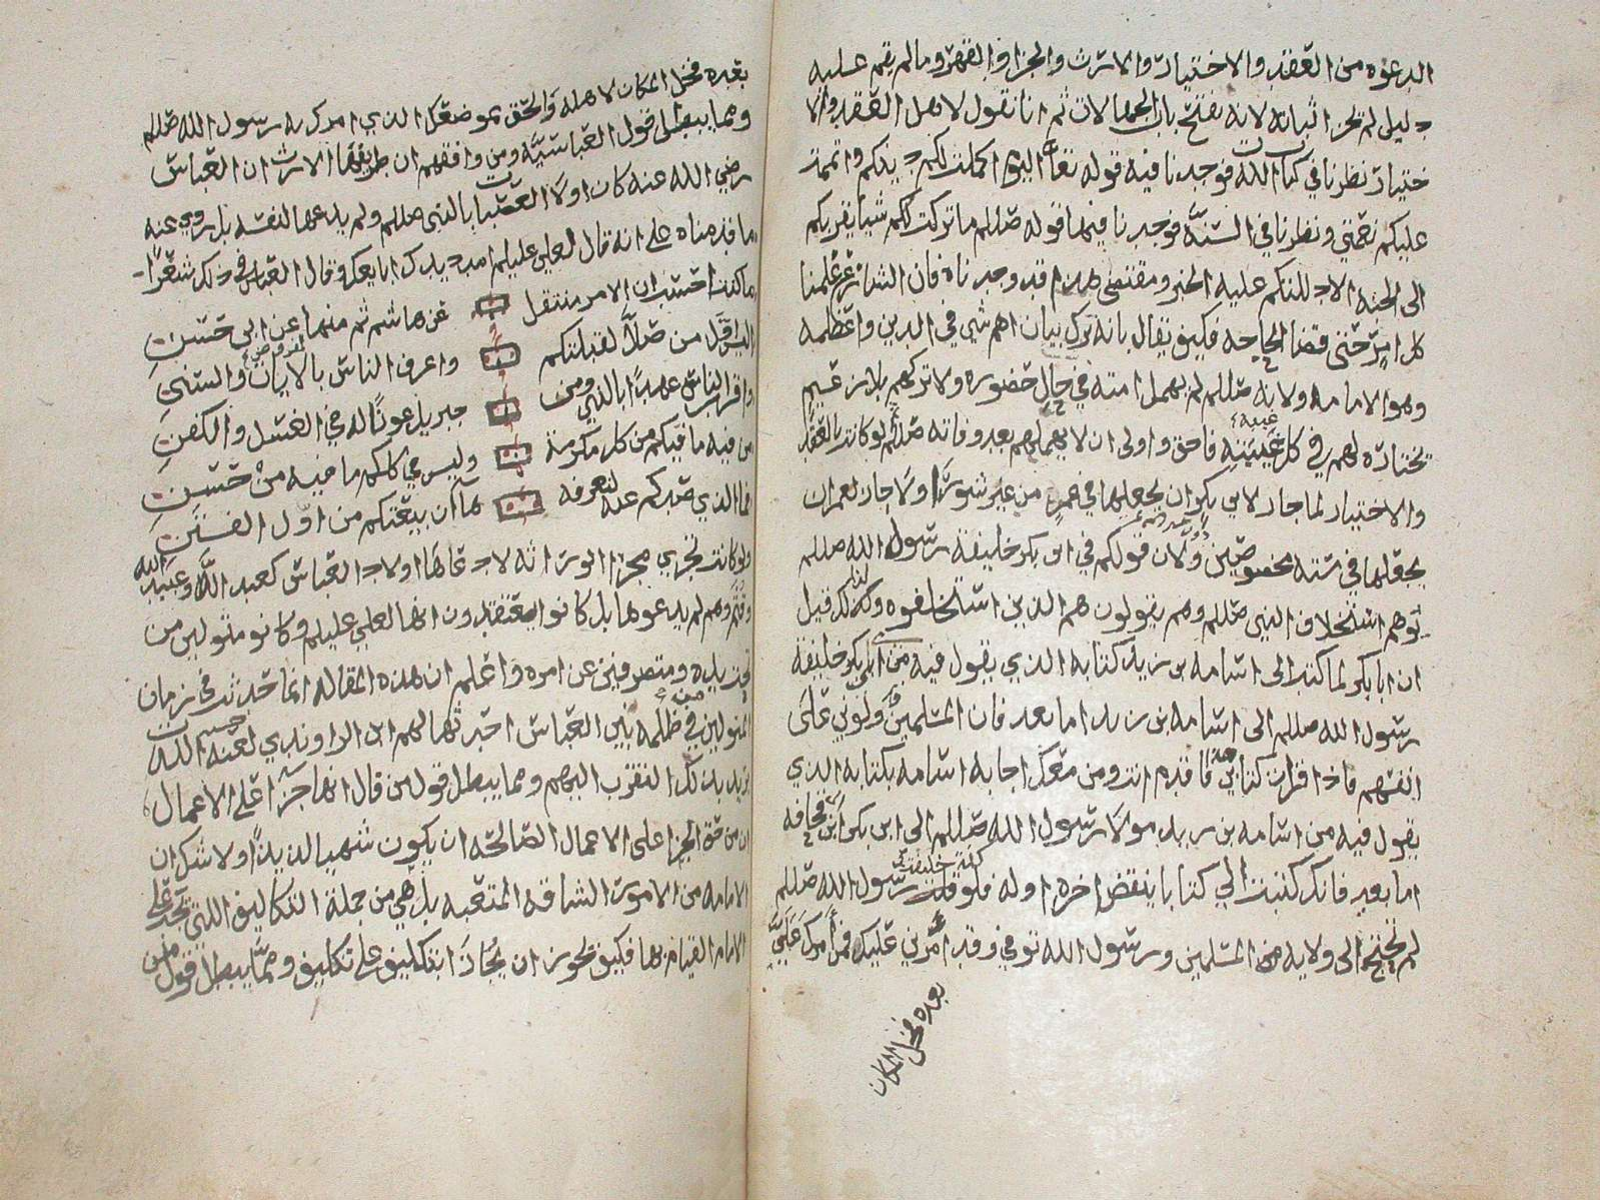 الدعوه من العقد والاختيار والارث والجزا والقهر وما لم يقم عليه
دليل لم يجز اثباته لانه يفتح باب الجهالات ثم انا نقول لاهل العقد والا
ختيار نظرنا في كتاب الله فوجدنا فيه قوله تعا اليوم اكملت لكم دينكم واتممت
عليكم نعمتي ونظرنا في السنه فوجدنا فيها قوله صللم ما تركت لكم شيا يقربكم
الى الجنه الا دللتكم عليه الخبر ومقتضى هذا قد وجدناه فان الشارع علمنا
كل امر حتى قضا الحاجه فكيف يقال بانه ترك بيان اهم شي في الدين واعظمه
وهو الامامه ولانه صللم لم يهمل امته في حال حضوره ولا تركهم بلا زعيم
يختاره لهم في كل غيبته غيبه فاحق واولى ان لا يهملهم بعد وفاته صللم لو كانت بالعقد
والاختيار لما جاز لابي بكر ان يجعلها في عمر من غير شورى ولا جاز لعمر ان
يجعلها في سته مخصوصين ولان قولكم في ابي بكر خليفة رسول الله صللم
توهم استخلاف النبي صللم وهم يقولون هم الذين استخلفوه وكذلك قيل
ان ابا بكر لما كتب الى اسامه بن زيد كتابه الذي يقول فيه من ابي بكر خليفة
رسول الله صللم الى اسامه بن زيد اما بعد فان المسلمين ولوني على
انفسهم فاذا قرات كتابي هذا فاقدم انت ومن معك اجابه اسامه بكتابه الذي
يقول فيه من اسامه بن زيد مولا رسول الله صللم الى ابي بكر ابن ابي قحافه
اما بعد فانك كتبت الي كتابا ينقض اخره اوله فلو قلت خليفة رسول الله صللم
لم تحتج الى ولايه من المسلمين ورسول الله توفي وقد امرني عليك فمن امرك علي
بعده فخل المكان
بعده فخل المكان لاهله والحق بموضعك الذي امرك به رسول الله صللم
ومما يبطل قول العباسيه ومن وافقهم ان طريقها الارث ان العباس
رضي الله عنه كان اولا العصبات بالنبي صللم ولم يدعها لنفسه بل روي عنه
ما قدمناه على انه قال لعلي عليلم امدد يدك ابايعك وقال العباس في ذلك شعرا
ما كنت احسب ان الامر منتقل عن هاشم ثم منها عن ابي حسن
اليس اول من صلا لقبلتكم واعرف الناس بالايات والسنن
واقرب الناس عهدا بالنبي ومن جبريل عونا له في الغسل والكفن
من فيه ما فيكم من كل مكرمة وليس في كلكم ما فيه من حسن
فما الذي صدكم عنه لنعرفه ها ان بيعتكم من اول الفتن
ولو كانت تجري مجرا الوراثه لادعاها اولاد العباس كعبد الله وعبيد الله
وقثم وهم لم يدعوها بل كانوا يعتقدون انها لعلي عليلم وكانو متولين من
تحت يده ومتصرفين عن امره واعلم ان هذه المقاله انما حدثت في زمان
المتولين في ظلمه بني العباس احدثها لهم ابن الراوندي لعنه الله
يريد بذلك التقرب اليهم ومما يبطل قول من قال انها جزا على الاعمال
ان من حق الجزا على الاعمال الصالحه ان يكون شهيا لذيذا ولا شك ان
الامامه من الامور الشاقه المتعبه بل هي من جملة التكاليف اللتي تجب على
الامام القيام بها فكيف يجوز ان يجازا بتكليف على تكليف ومما يبطل قول من